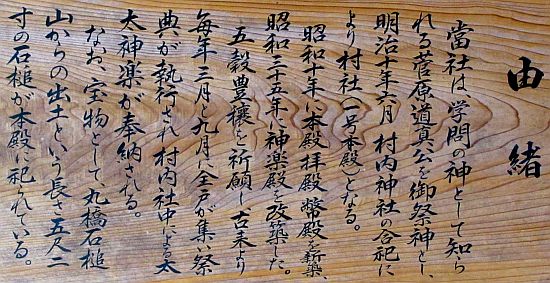 由緒
當社は、学問の神として知ら
れる菅原道真公を御祭神とし、
明治十年六月 村内神社の合祀に
より村社(一号本殿)となる。
昭和十年に本殿拝殿幣殿を新築、
昭和三十五年に神楽殿を改築した。
五穀豊穣を祈願し古来より
毎年三月と九月に全戸が集い祭
典が執行され村内社中による太
大神楽が奉納される。
なお、宝物として、丸橋石槌
山からの出土という長さ五尺二
寸の石槌が本殿に祀られている。